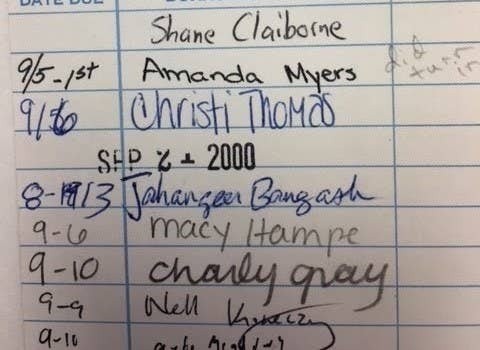 DATE DUE
Shane Claiborne
9/5-1st Amanda Myers did turn in
Christi Thomas
SEP 2000
Jahangeer Bangash
9-6 Macy Hampe
9-10 Charly gray
9-9 Nell
9-10